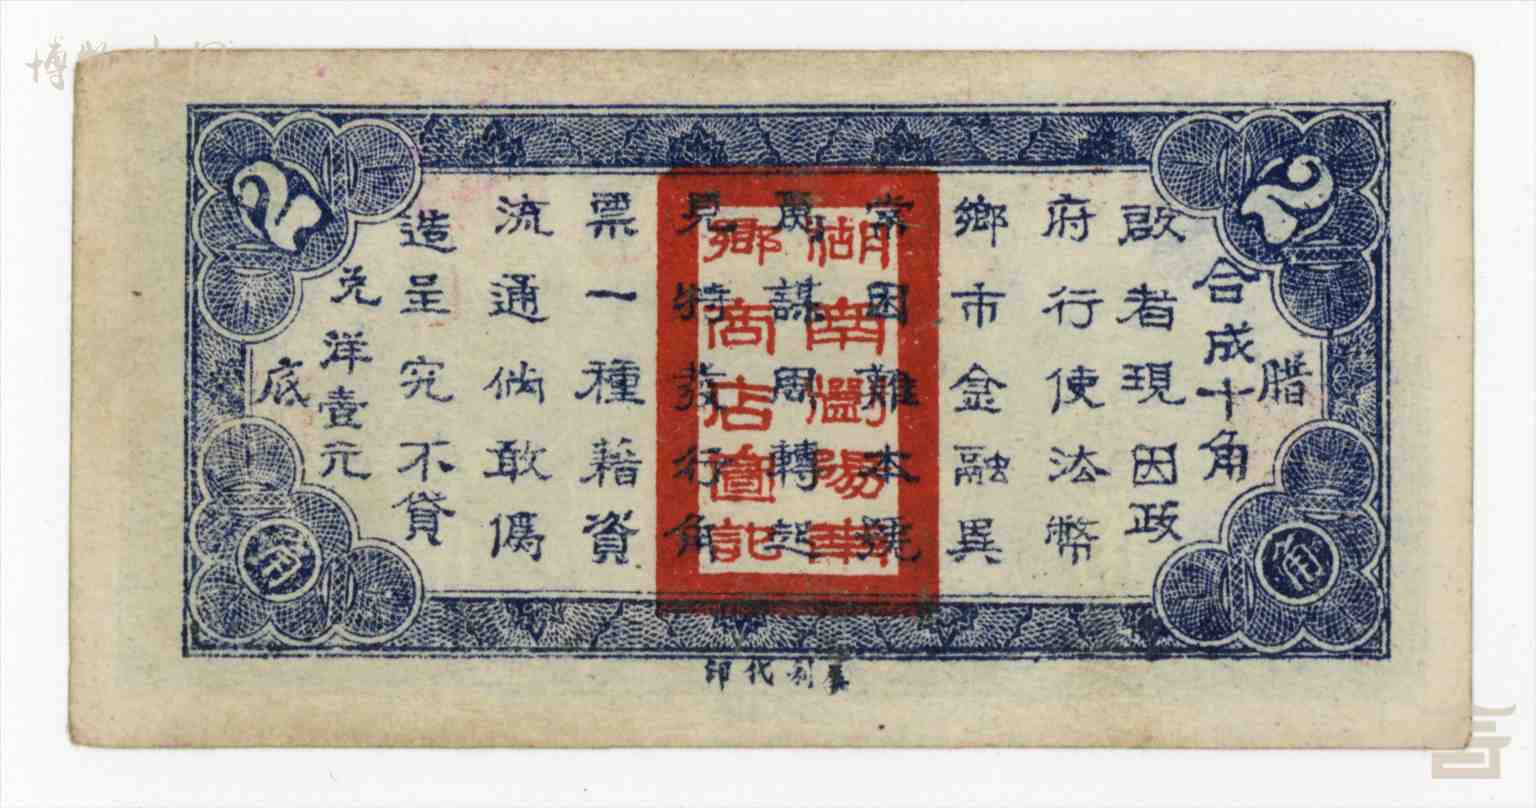 2
2
腊
合成十角
啟者現因政
府行使法幣
鄉市金融異
常困難本號
爰謀周轉起
見特發行角
票一種藉資
流通倘敢偽
造呈究不貸
兑洋壹元
底
湖南瀏陽東
鄉商店圖記
角
角
利代印
博